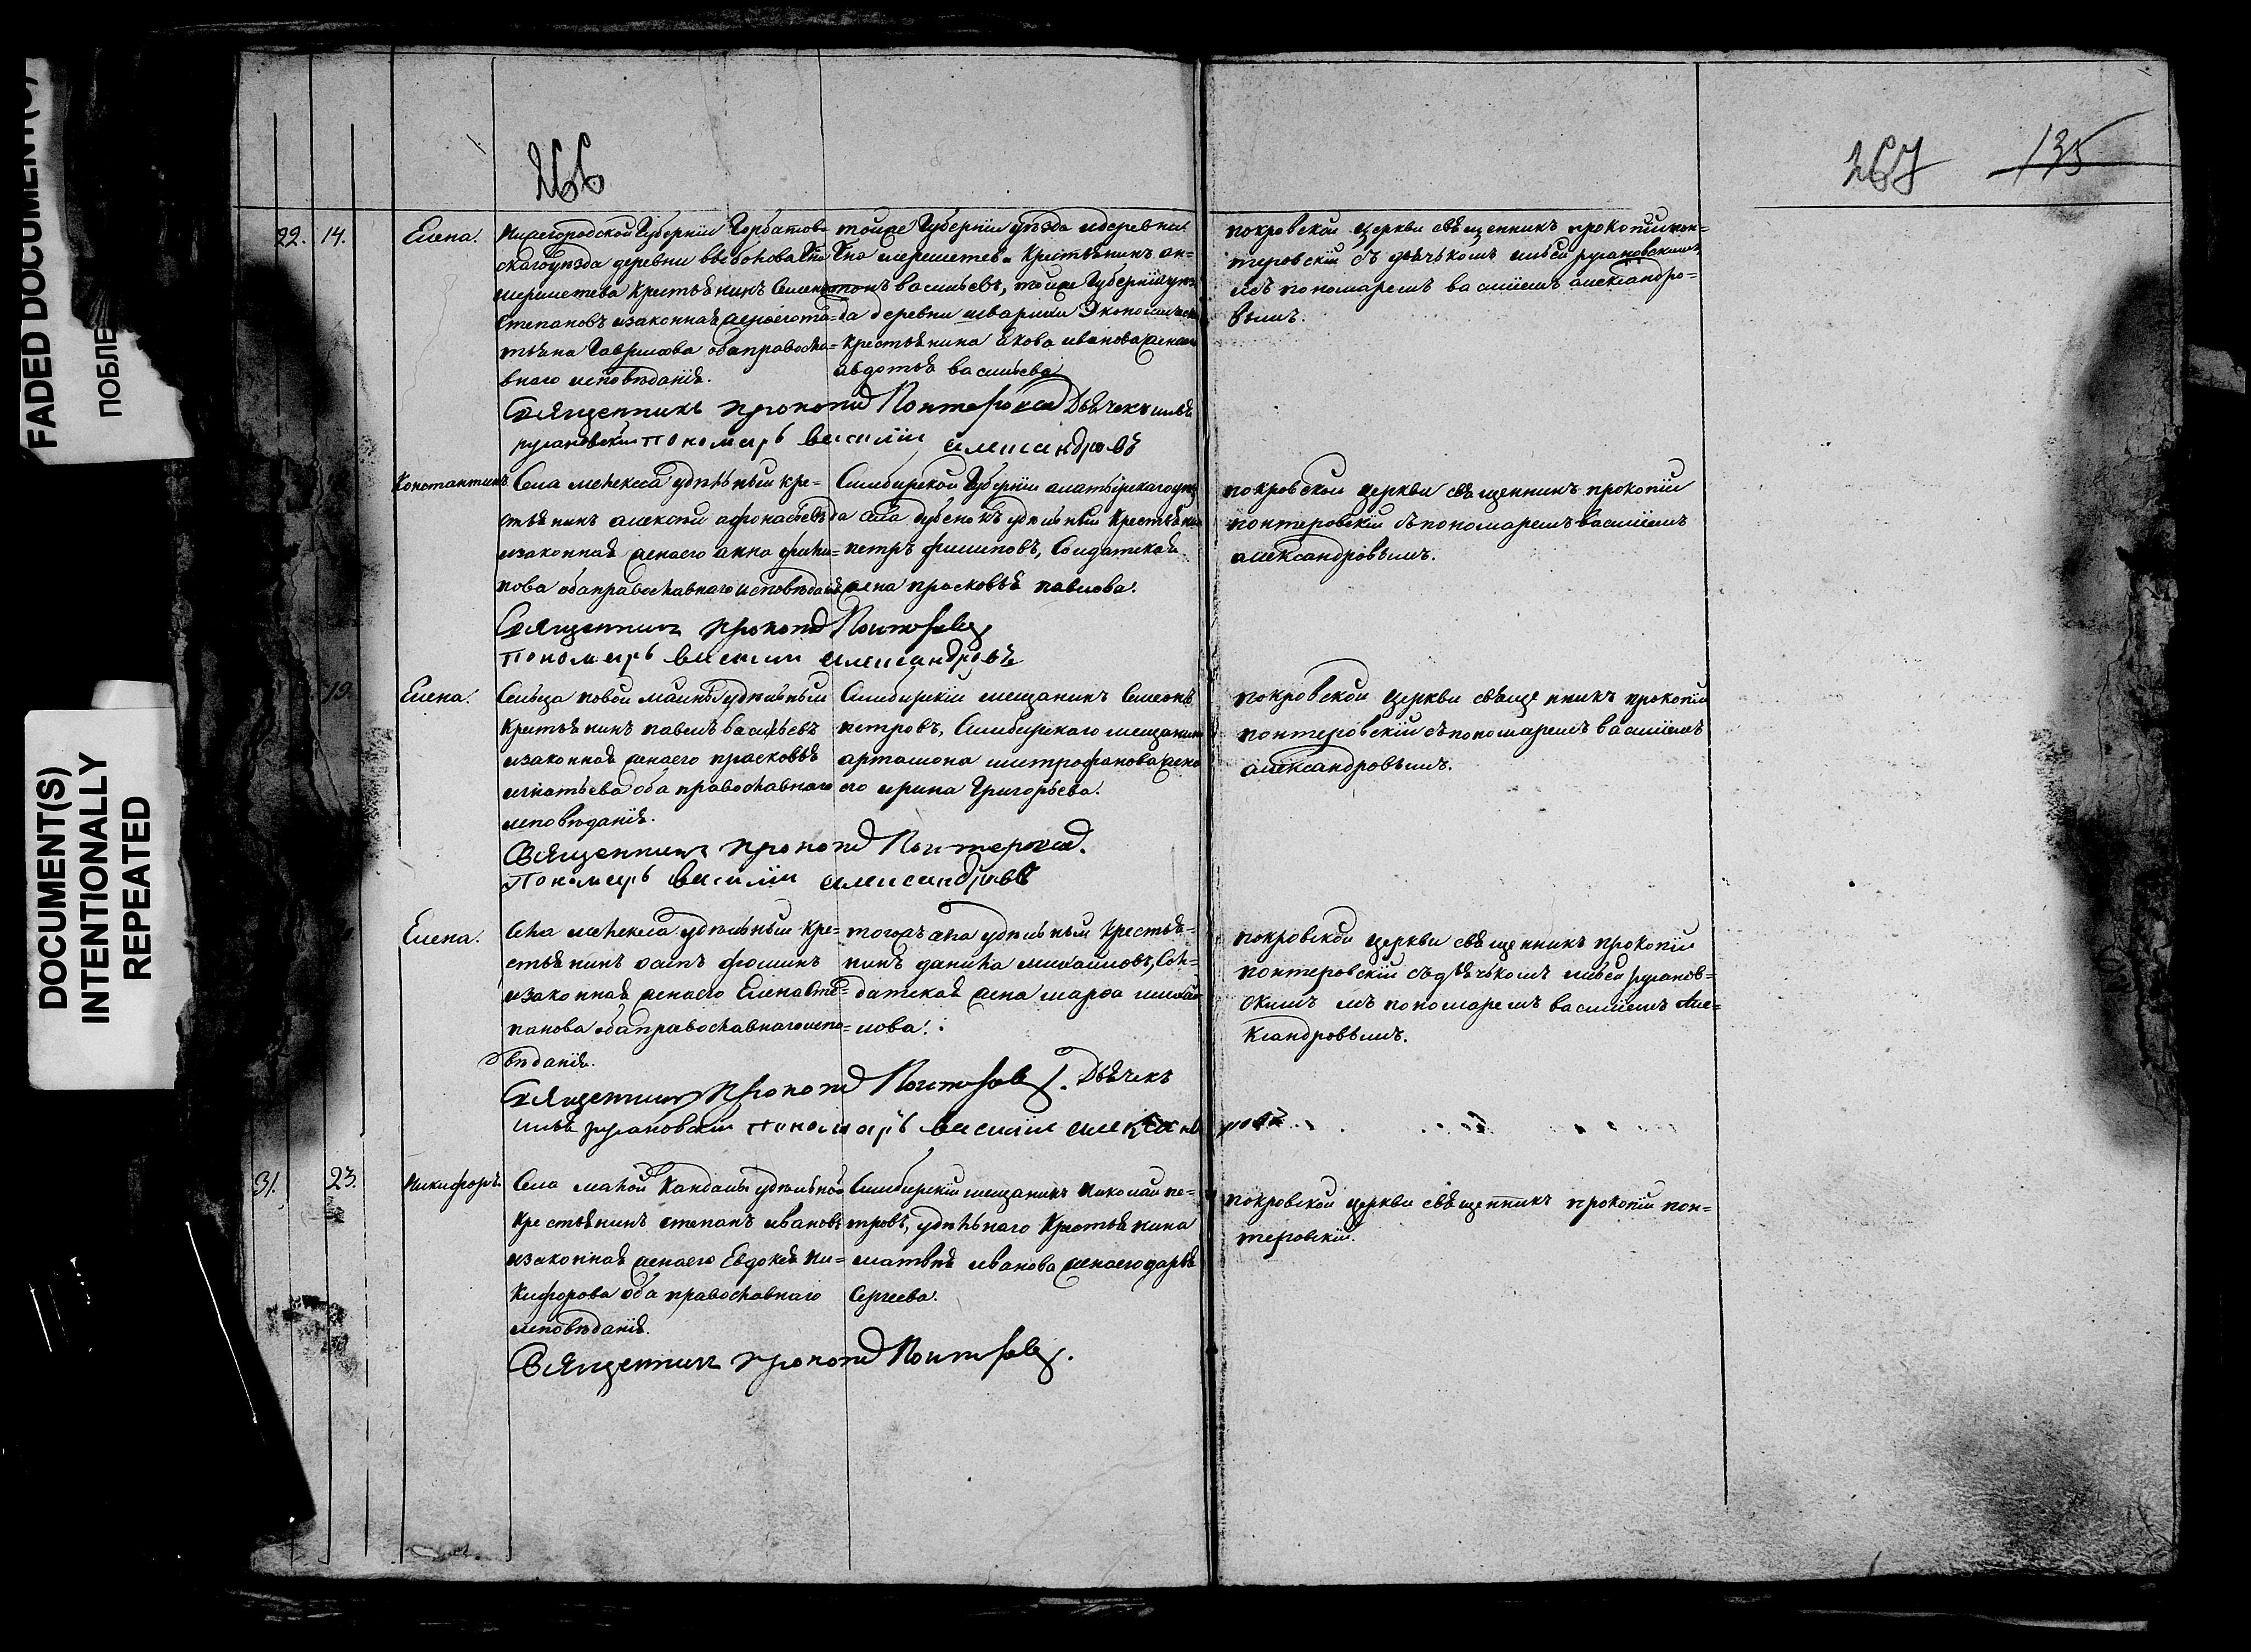 FADED DOCUMENT(S)
ПОБЛЕ
DOCUMENT(S)
INTENTIONALLY
REPEATED
266
267 135
22. 14. Елена.
Нижегородской Губернiи Горбатов-
скаго уѣзда деревни
шереметева крестьянинъ Семенъ
Степановъ изаконная женаего та-
тьяна Гаврилова обаправосла-
внаго исповѣданiя.
тойже Губернiи уѣзда издеревни
Гна шереметева крестьянинъ ан-
тонъ васильевъ, тойже Губернiи уѣз-
да деревни Экономическ
крестьянина якова иванова жена
авдотья васильева
покровской церкви священникъ прокопiй пон-
теровскiй съ дьячькомъ ильей ругановскимъ
изъ пономаремъ василiемъ александро-
вымъ.
Священникъ прокопiй Понтеровскiй Дьячекъ илья
ругановскiй пономарь василiй александровъ
Константинъ.
Села мелекеса удѣльный кре-
стьянинъ алексѣй афонасьевъ
изаконная женаего анна фили-
пова обаправославнаго исповѣданiя
Симбирской Губернiи алатырскаго уѣз
да села дубенокъ удѣльный крестьянин
петръ филиповъ, Солдатская
жена прасковья павлова.
покровской церкви священникъ прокопiй
понтеровскiй съ пономаремъ василiемъ
александровымъ.
Священникъ прокопiй Понтеровскiй
Пономарь василiй александровъ
19. Елена.
Сельца новой майны удѣльный
крестьянинъ павелъ васильевъ
изаконная женаего прасковья
игнатьева оба православнаго
исповѣданiя.
Симбирскiй мещанинъ Семенъ
петровъ, Симбирскаго мещанина
артамона митрофанова жена
его ирина Григорьева.
покровской церкви священникъ прокопiй
понтеровскiй съ пономаремъ василiемъ
александровымъ.
Священникъ прокопiй Понтеровскiй.
Пономарь василiй александровъ
Елена.
села мелекеса удѣльный кре-
стьянинъ осипъ фоминъ
изаконная женаего Елена Сте-
панова обаправославнаго испо-
вѣданiя.
тогожъ села удѣльный крестья-
нинъ данила михаиловъ, Сол-
датская жена марфа михаи
лова.
покровской церкви священникъ прокопiй
понтеровскiй съ дьячькомъ ильей руганов-
скимъ изъ пономаремъ василiемъ Але-
ксандровымъ.
Священникъ прокопiй Понтеровскiй. Дьячекъ
илья ругановскiй пономарь василiй александ ровъ
31. 23. Никифоръ.
Села малой Кандалы удѣльной
крестьянинъ степанъ ивановъ
изаконная женаего Евдокея ни-
кифорова оба православнаго
исповѣданiя.
Симбирскiй мещанинъ николай пе-
тровъ, удѣльнаго крестьянина
матвѣя иванова женаего дарья
Сергеева.
покровской церкви священникъ прокопiй пон-
теровскiй.
Священникъ прокопiй Понтеровскiй.